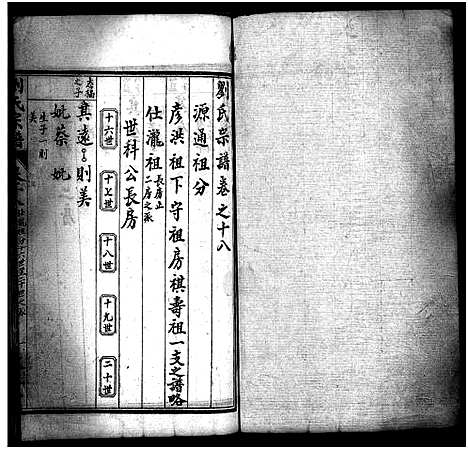 劉氏宗譜卷之十八
源通祖分
彥洪祖下守祖房祺壽祖一支之譜略
仕瀧祖長房止二房之承
世科公長房
十六世 十七世 十八世 十九世 二十世
志福之子 真遠 則美
妣蔡 妣
生子一則美